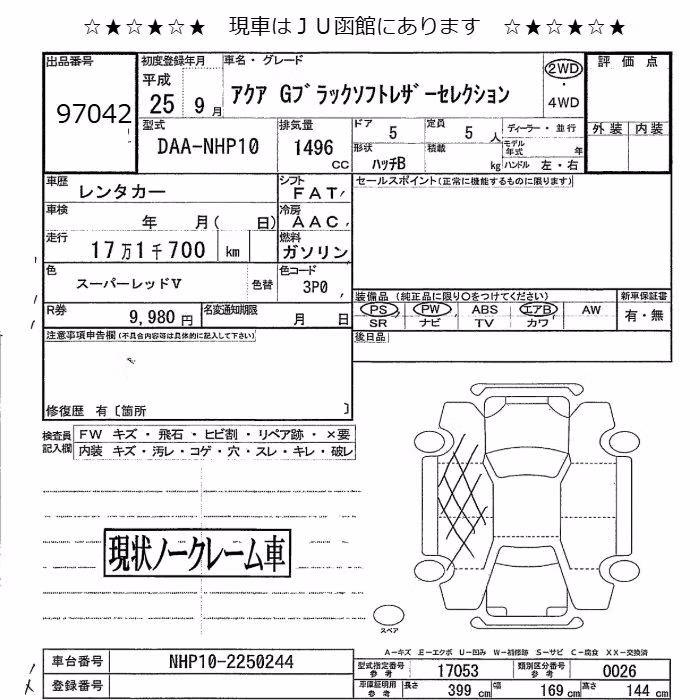 ☆★☆★☆★ 現車はＪＵ函館にあります ☆★☆★☆★
出品番号 初度登録年月 車名・グレード 評価点
97042 平成 25 9月 アクア Gブラックソフトレザーセレクション 2WD・4WD
型式 排気量 ドア 5 定員 5人 ディーラー・並行 外装 内装
DAA-NHP10 1496cc 形状 ハッチB 積載 kg モデル年式 年
ハンドル 左・右
車歴 レンタカー シフト FAT セールスポイント(正常に機能するものに限ります)
車検 年 月( 日) 冷房 AAC
走行 17万1千700 km 燃料 ガソリン
色 スーパーレッドV 色替 色コード 3P0
装備品 (純正品に限り○をつけてください) 新車保証書
R券 9,980円 名変通知期限 月 日 PS PW ABS エアB AW 有・無
SR ナビ TV カワ
注意事項申告欄(不具合内容等は具体的に記入して下さい) 後日品
修復歴 有〔箇所 〕
検査員記入欄 FW キズ・飛石・ヒビ割・リペア跡・×要
内装 キズ・汚レ・コゲ・穴・スレ・キレ・破レ
現状ノークレーム車
スペア
A－キズ E－エクボ U－凹み W－補修跡 S－サビ C－腐食 XX－交換済
車台番号 NHP10-2250244 型式指定番号参考 17053 類別区分番号参考 0026
登録番号 車庫証明用参考 長さ 399cm 幅 169cm 高さ 144cm